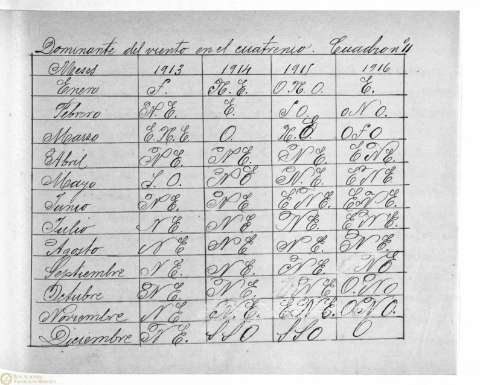 Dominante del viento en el cuatrenio. Cuadro nº 4
Meses 1913 1914 1915 1916
Enero S. N. E. O. N. O. E.
Febrero N. E. E. S O. O. N O.
Marzo E. N. E O. N. E O S O
Abril N E. N E. N E. E N E.
Mayo S. O. N E N. E. E N E
Junio N E. N E. E N E. E N E.
Julio N E. N E. N E. E N E.
Agosto N E N E N E. N E.
Septiembre N E. N E. N E. N E
Octubre N E. N E. N E. O. N O
Noviembre N E. N. E. E. N E. O. N O.
Diciembre N E. S S O S S O. O